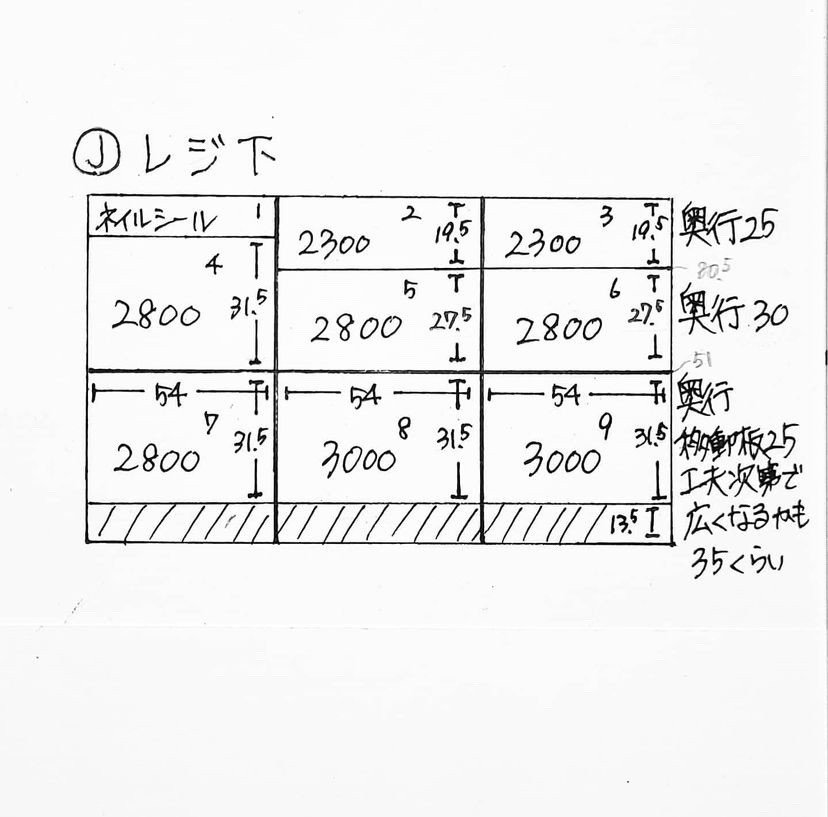 Ⓙ レジ下
ネイルシール 1
2
2300 19.5
3
2300 19.5
奥行25
80.5
4
2800 31.5
5
2800 27.5
6
2800 27.5
奥行30
51
54
7
2800 31.5
54
8
3000 31.5
54
9
3000 31.5
13.5
奥行
移動板25
工夫次第で
広くなるかも
35くらい